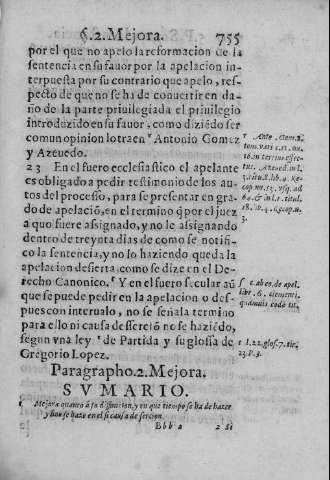 §.2. Mejora. 755
por el que no apelo la reformacion de la
sentencia en su fauor por la apelacion in-
terpuesta por su contrario que apelo, res-
pecto de que no se ha de conuertir en da-
ño de la parte priuilegiada el priuilegio
introduzido en su fauor, como diziẽdo ser
comun opinion lo traen Antonio Gomez
y Azeuedo.
23 En el fuero ecclesiastico el apelante
es obligado a pedir testimonio de los au-
tos del processo, para se presentar en gra-
do de apelaciõ, en el termino q̃ por el juez
a quo fuere assignado, y no le assignando
dentro de treynta dias de como se notifi-
co la sentencia, y no lo haziendo queda la
apelacion desierta como se dize en el De-
recho Canonico. ſ Y en el fuero secular aũ
que se puede pedir en la apelacion o des-
pues con interualo, no se señala termino
para ello ni causa desserciõ no se haziẽdo,
segun vna ley t de Partida y su glossa de
Gregorio Lopez.
r Ante. Gom. 2.
tom. vari. c. 11. nu.
16. in terano effec-
tus. Azeued. in l.
ſ c. ab eo. de apel.
libr. 6. clementi.
quamuis eode tit.
t l. 22. glos. 7. tit.
23. P. 3.
Paragrapho. 2. Mejora.
SVMARIO.
1 Mejora quanto à su difinicion, y en que tiempo se ha de hazer
y hoy se haze en el si causa de sercion.
Bbb 2 2 Si